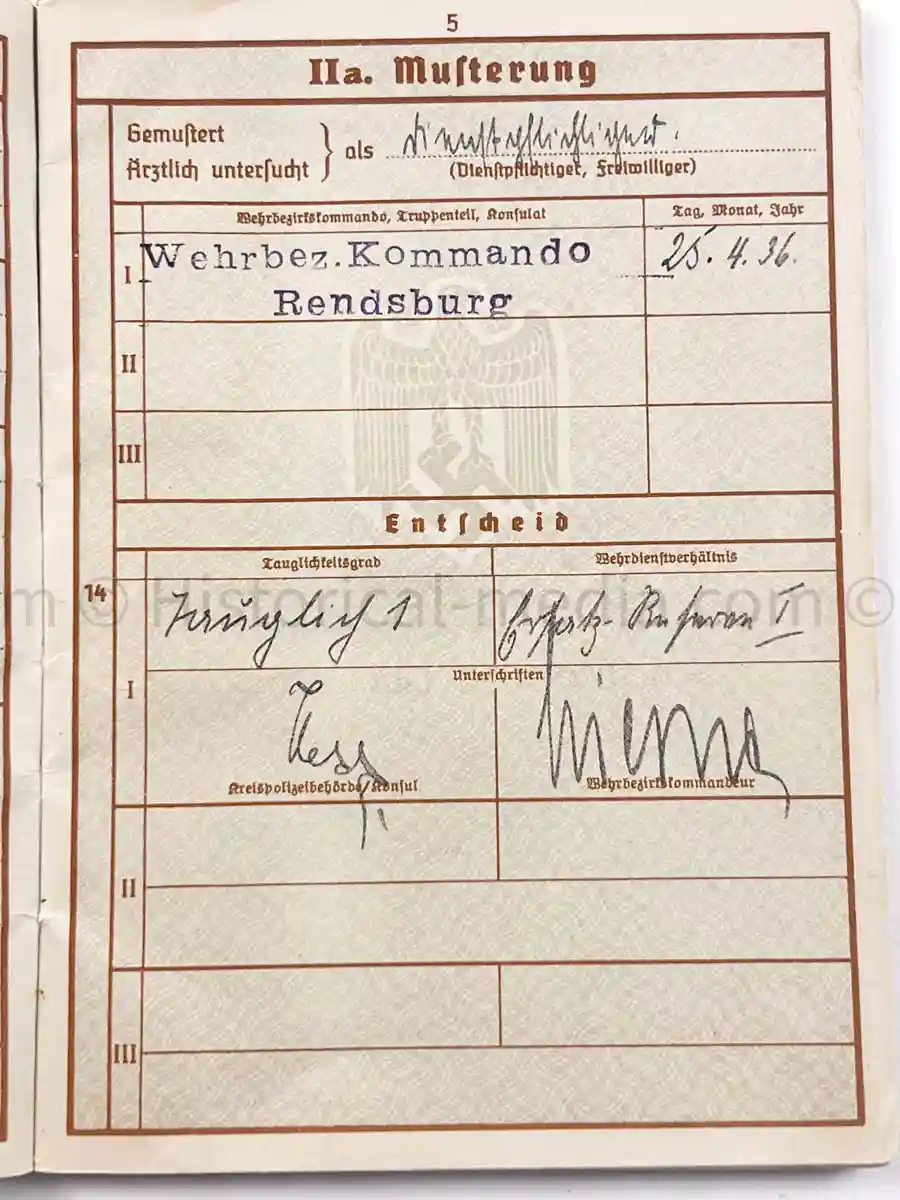 5
IIa. Musterung
Gemustert
Ärztlich untersucht
als
Dienstpflichtiger.
(Dienstpflichtiger, Freiwilliger)
Wehrbezirkskommando, Truppenteil, Konsulat
Tag, Monat, Jahr
I
Wehrbez.Kommando
Rendsburg
25. 4. 36.
II
III
Entscheid
14
Tauglichkeitsgrad
Wehrdienstverhältnis
Tauglich 1
Ersatz-Reserve I
I
Unterschriften
Kreispolizeibehörde/Konsul
Wehrbezirkskommandeur
II
III
m © Historical-media.com ©